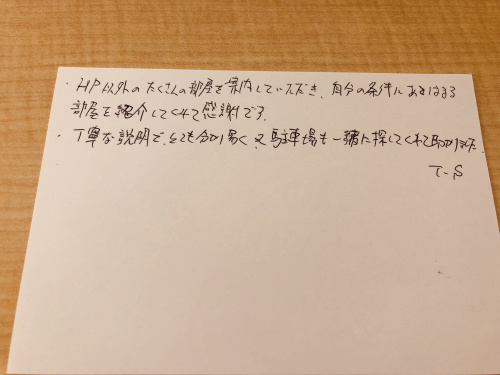 ・HP以外のたくさんの部屋を案内していただき、自分の条件にあてはまる
部屋を紹介してくれて感謝です。
・丁寧な説明で、とても分かり易く、又駐車場も一緒に探してくれて助かりました。
T-S